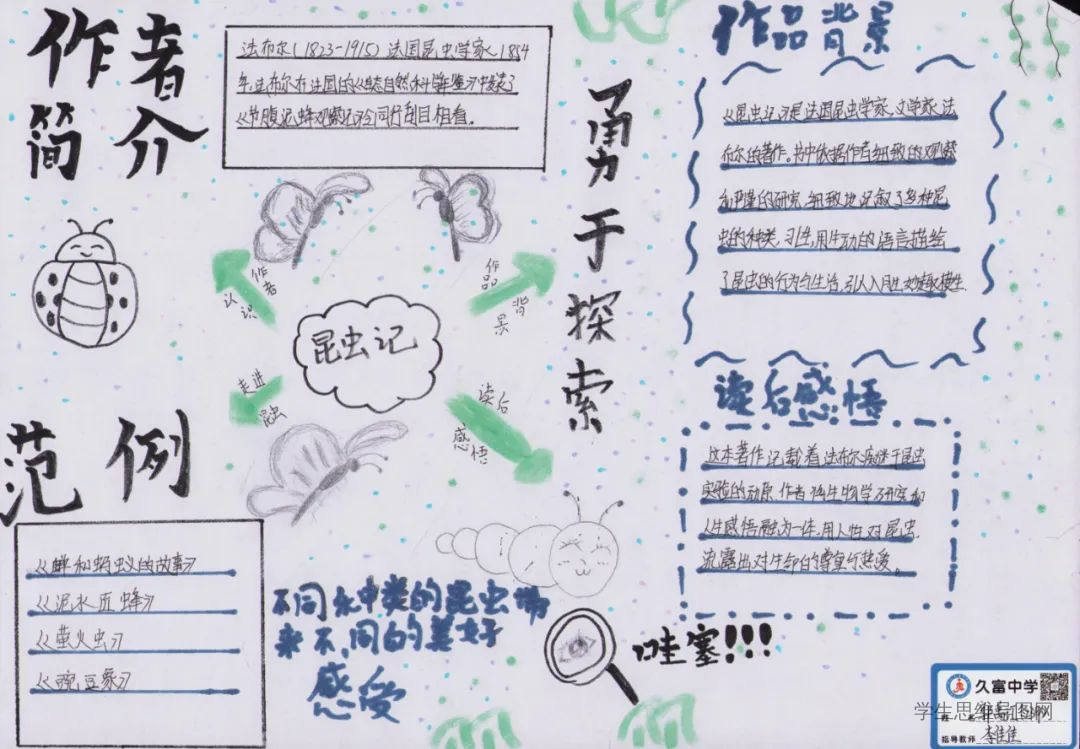 作者
简介
法布尔(1823-1915)法国昆虫学家、1854
年,法布尔在法国的《自然科学年鉴》中发表了
《节腹泥蜂观察记》令同行刮目相看。
勇于探索
作品背景
《昆虫记》是法国昆虫学家,文学家,法
布尔的著作。书中依据作者细致的观察
和严谨的研究,细致地记叙了多种昆
虫的种类,习性,用生动的语言描绘
了昆虫的行为与生活,引人入
认识
作者
作品
背景
昆虫记
走进
昆虫
读后
感悟
读后感悟
这本著作记载着法布尔痴迷于昆虫
实验的动原,作者将生物学研究和
人生感悟融为一体,用人性对昆虫.
流露出对生命的尊重与热爱。
范例
《蝉和蚂蚁的故事》
《泥水匠蜂》
《萤火虫》
《豌豆象》
不同
类的昆虫带
来不同的美好
感受
哇塞!!!
久富中学
学生思维导图网
指导教师 李佳佳